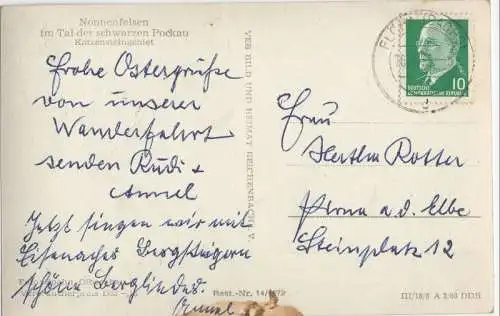 Nonnenfelsen
im Tal der schwarzen Pockau
Katzensteingebiet
Frohe Ostergrüße
von unserer
Wanderfahrt
senden Rudi +
Annel
Jetzt singen wir mit
Eisenacher Bergsteigern
schöne Berglieder.
Annel
VEB BILD UND HEIMAT REICHENBACH I. V.
Best.-Nr. 14/
10
DEUTSCHE
DEMOKRATISCHE REPUBLIK
Frau
Hertha Rotter
Pirna a. d. Elbe
Steinplatz 12
III/18/6 A 1/63 DDR